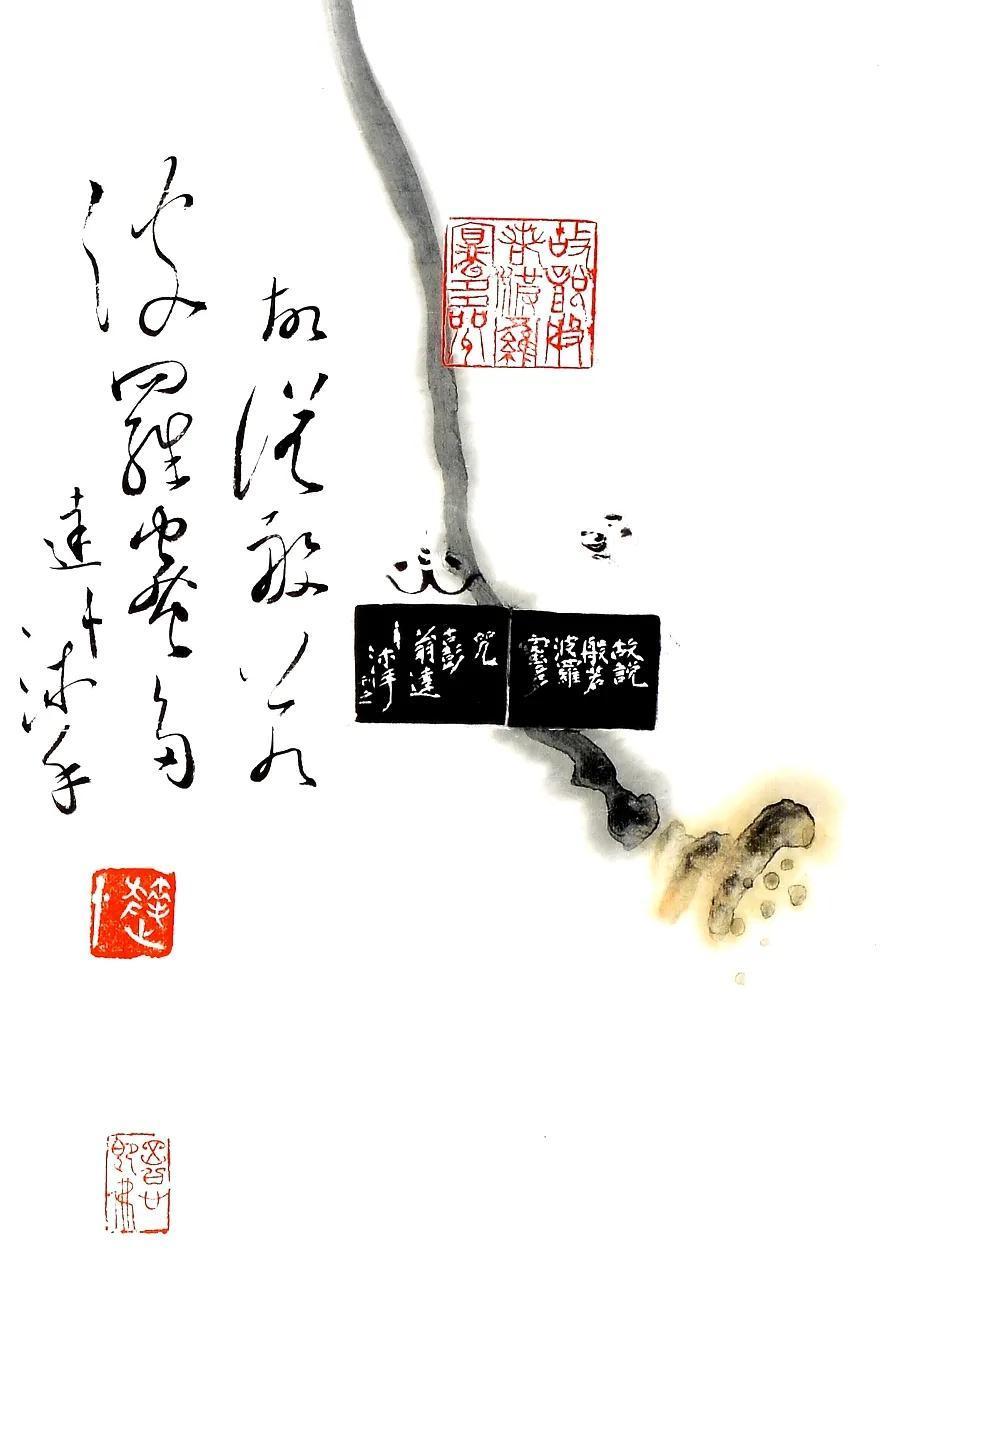 故說般若
波羅蜜多
達十沐手
故說般
若波羅
蜜多咒
故說
般若
波羅
蜜多
咒
翁達
沐手